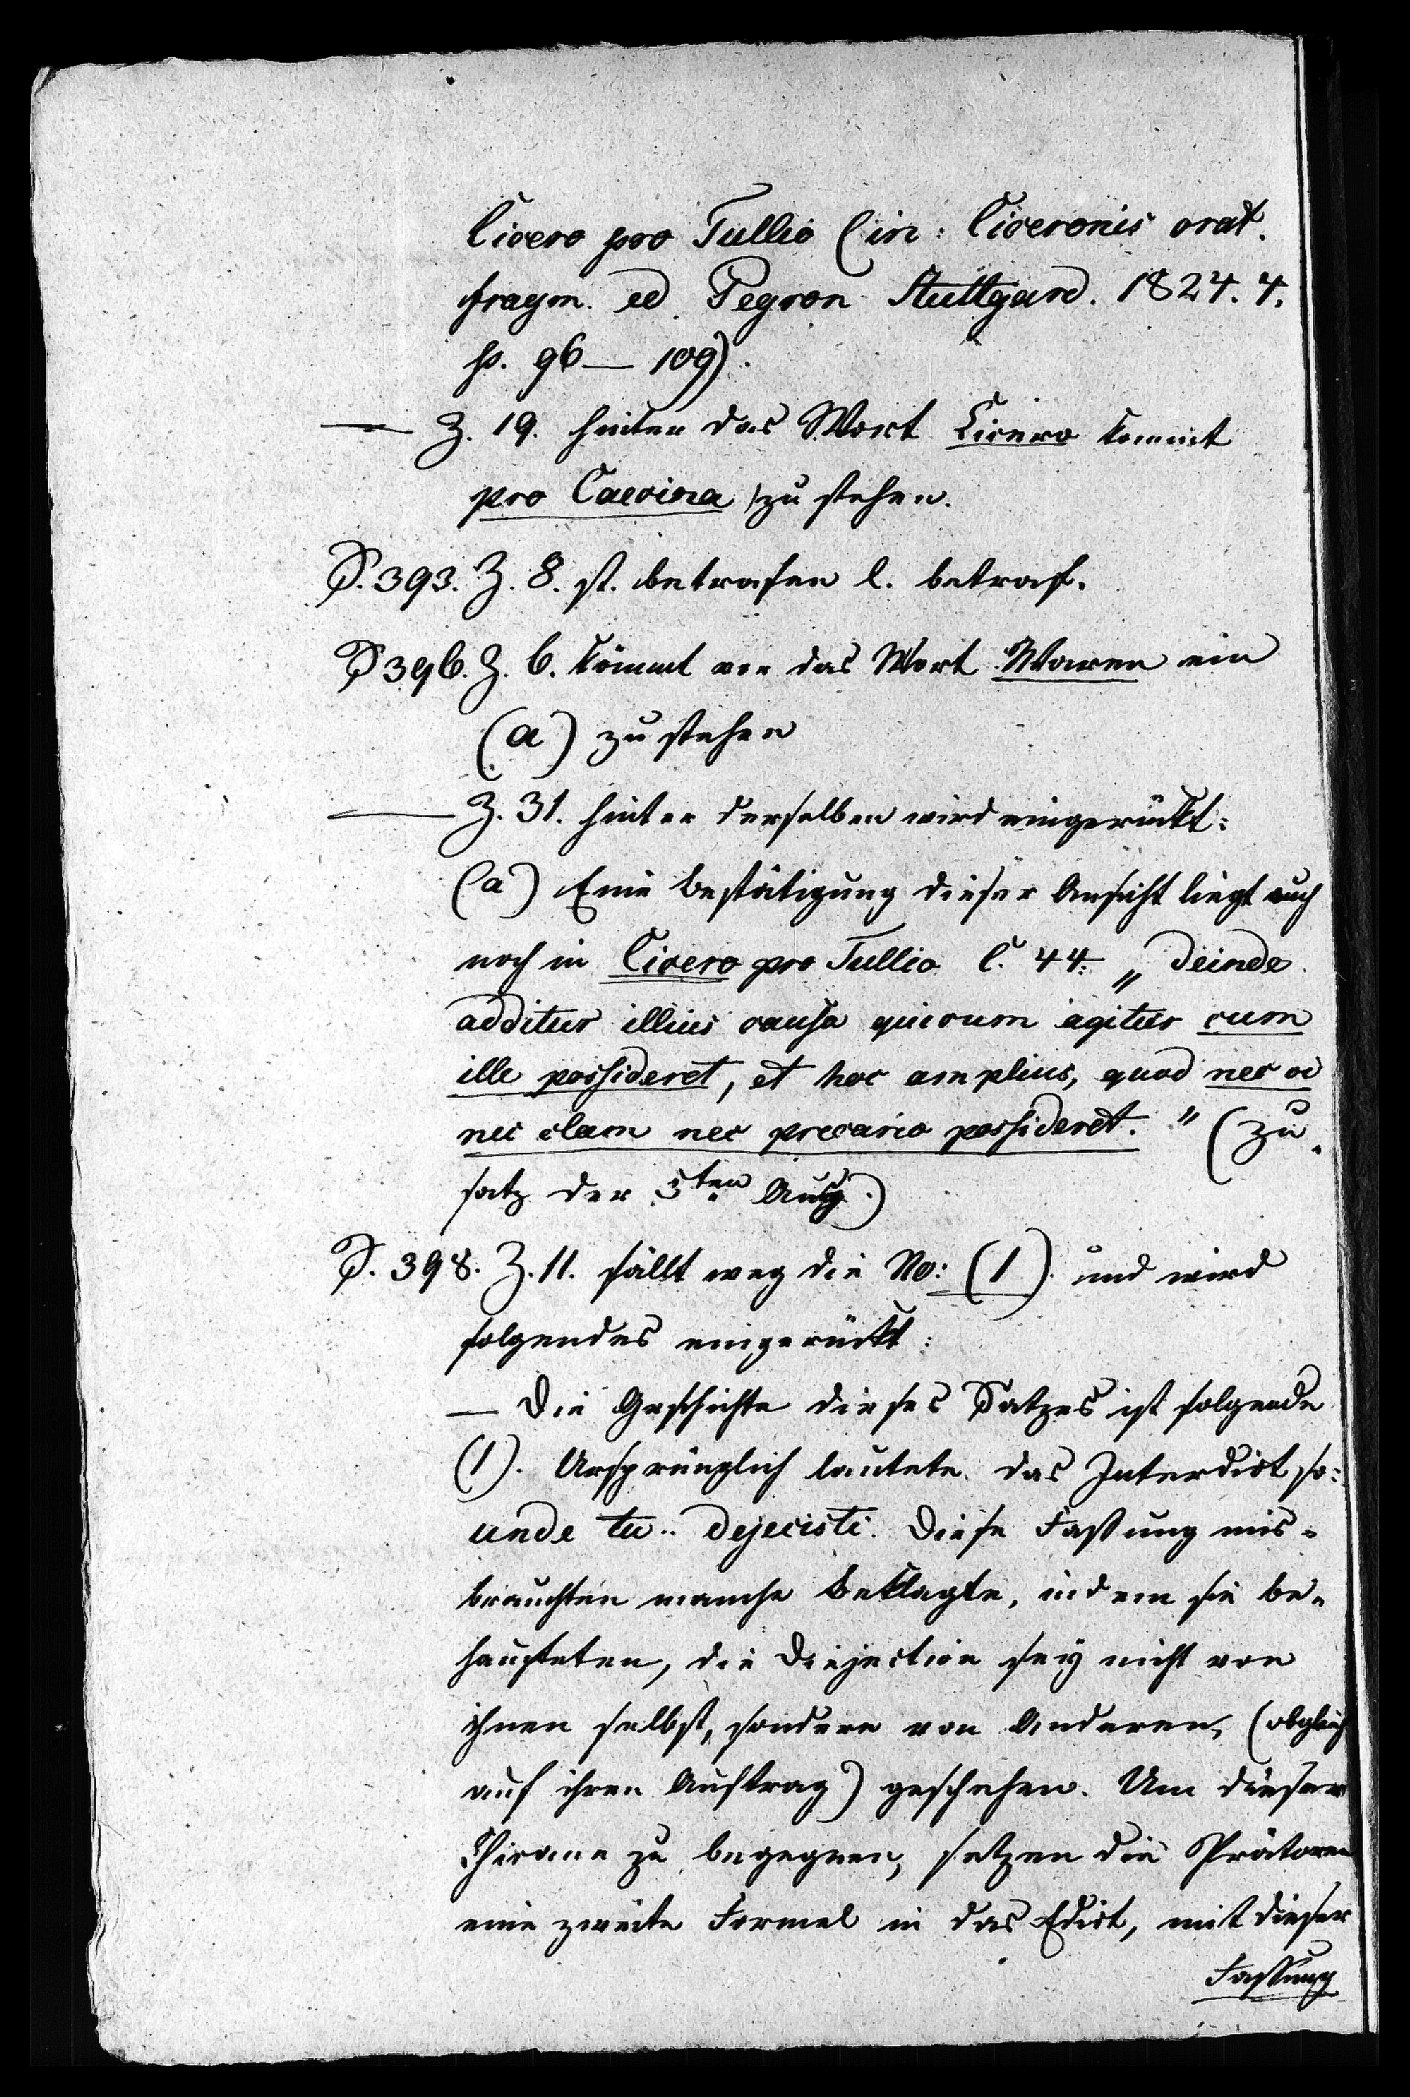 Cicero pro Tullio (in: Ciceronis orat.
fragm. ed. Pegron Stuttgard. 1824. 4.
p. 96 — 109).
— Z. 19. hinter das Wort Cicero kommt
pro Caecina zu stehen.
S. 393. Z. 8. st. betrafen l. betraf.
S 396. Z. 6. kömmt vor das Wort Waren ein
(a) zu stehen
— Z. 31. hinter derselben wird eingerückt:
(a) Eine Bestätigung dieser Ansicht liegt auch
noch in Cicero pro Tullio C. 44: „Deinde
additur illius causa quicum agitur cum
ille possideret, et hoc amplius, quod nec vi
nec clam nec precario possideret." (Zu-
satz der 5ten Ausg.)
S. 398. Z. 11. fällt weg die No: (1). und wird
folgendes eingerückt:
— Die Geschichte dieses Satzes ist folgende
(1). Ursprünglich lautete das Interdict so:
unde tu.. dejecisti. Diese Fassung mis-
brauchten manche Beklagte, indem sie be-
haupteten, die Dejection sey nicht von
ihnen selbst, sondern von Anderen, (obgleich
auf ihren Auftrag) geschehen. Um dieser
Chicane zu begegnen, setzen die Prätoren
eine zweite Formel in das Edict, mit dieser
Fassung